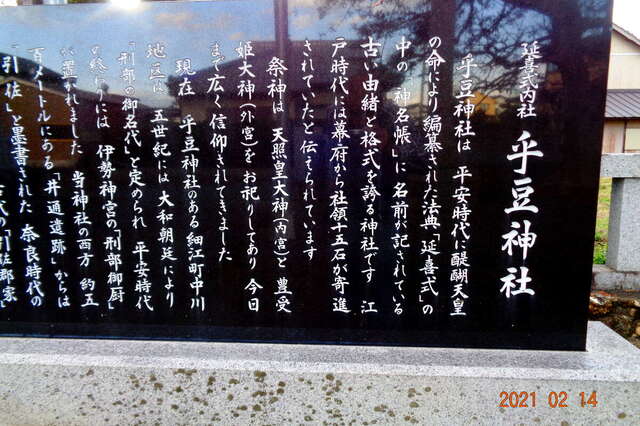 延喜式内社 乎豆神社
乎豆神社は 平安時代に醍醐天皇
の命により編纂された法典「延喜式」の
中の「神名帳」に名前が記されている
古い由緒と格式を誇る神社です 江
戸時代には幕府から社領十五石が寄進
されていたと伝えられています
祭神は 天照皇大神(内宮)と 豊受
姫大神(外宮)をお祀りしてあり 今日
まで広く信仰されてきました
現在 乎豆神社のある細江町中川
地区は 五世紀には 大和朝廷により
「刑部の御名代」と定められ 平安時代
の終りには 伊勢神宮の「刑部御厨」
が置かれました 当神社の西方 約五
百メートルにある「井通遺跡」からは
「引佐」と墨書された 奈良時代の
「引佐郡家」
2021 02 14